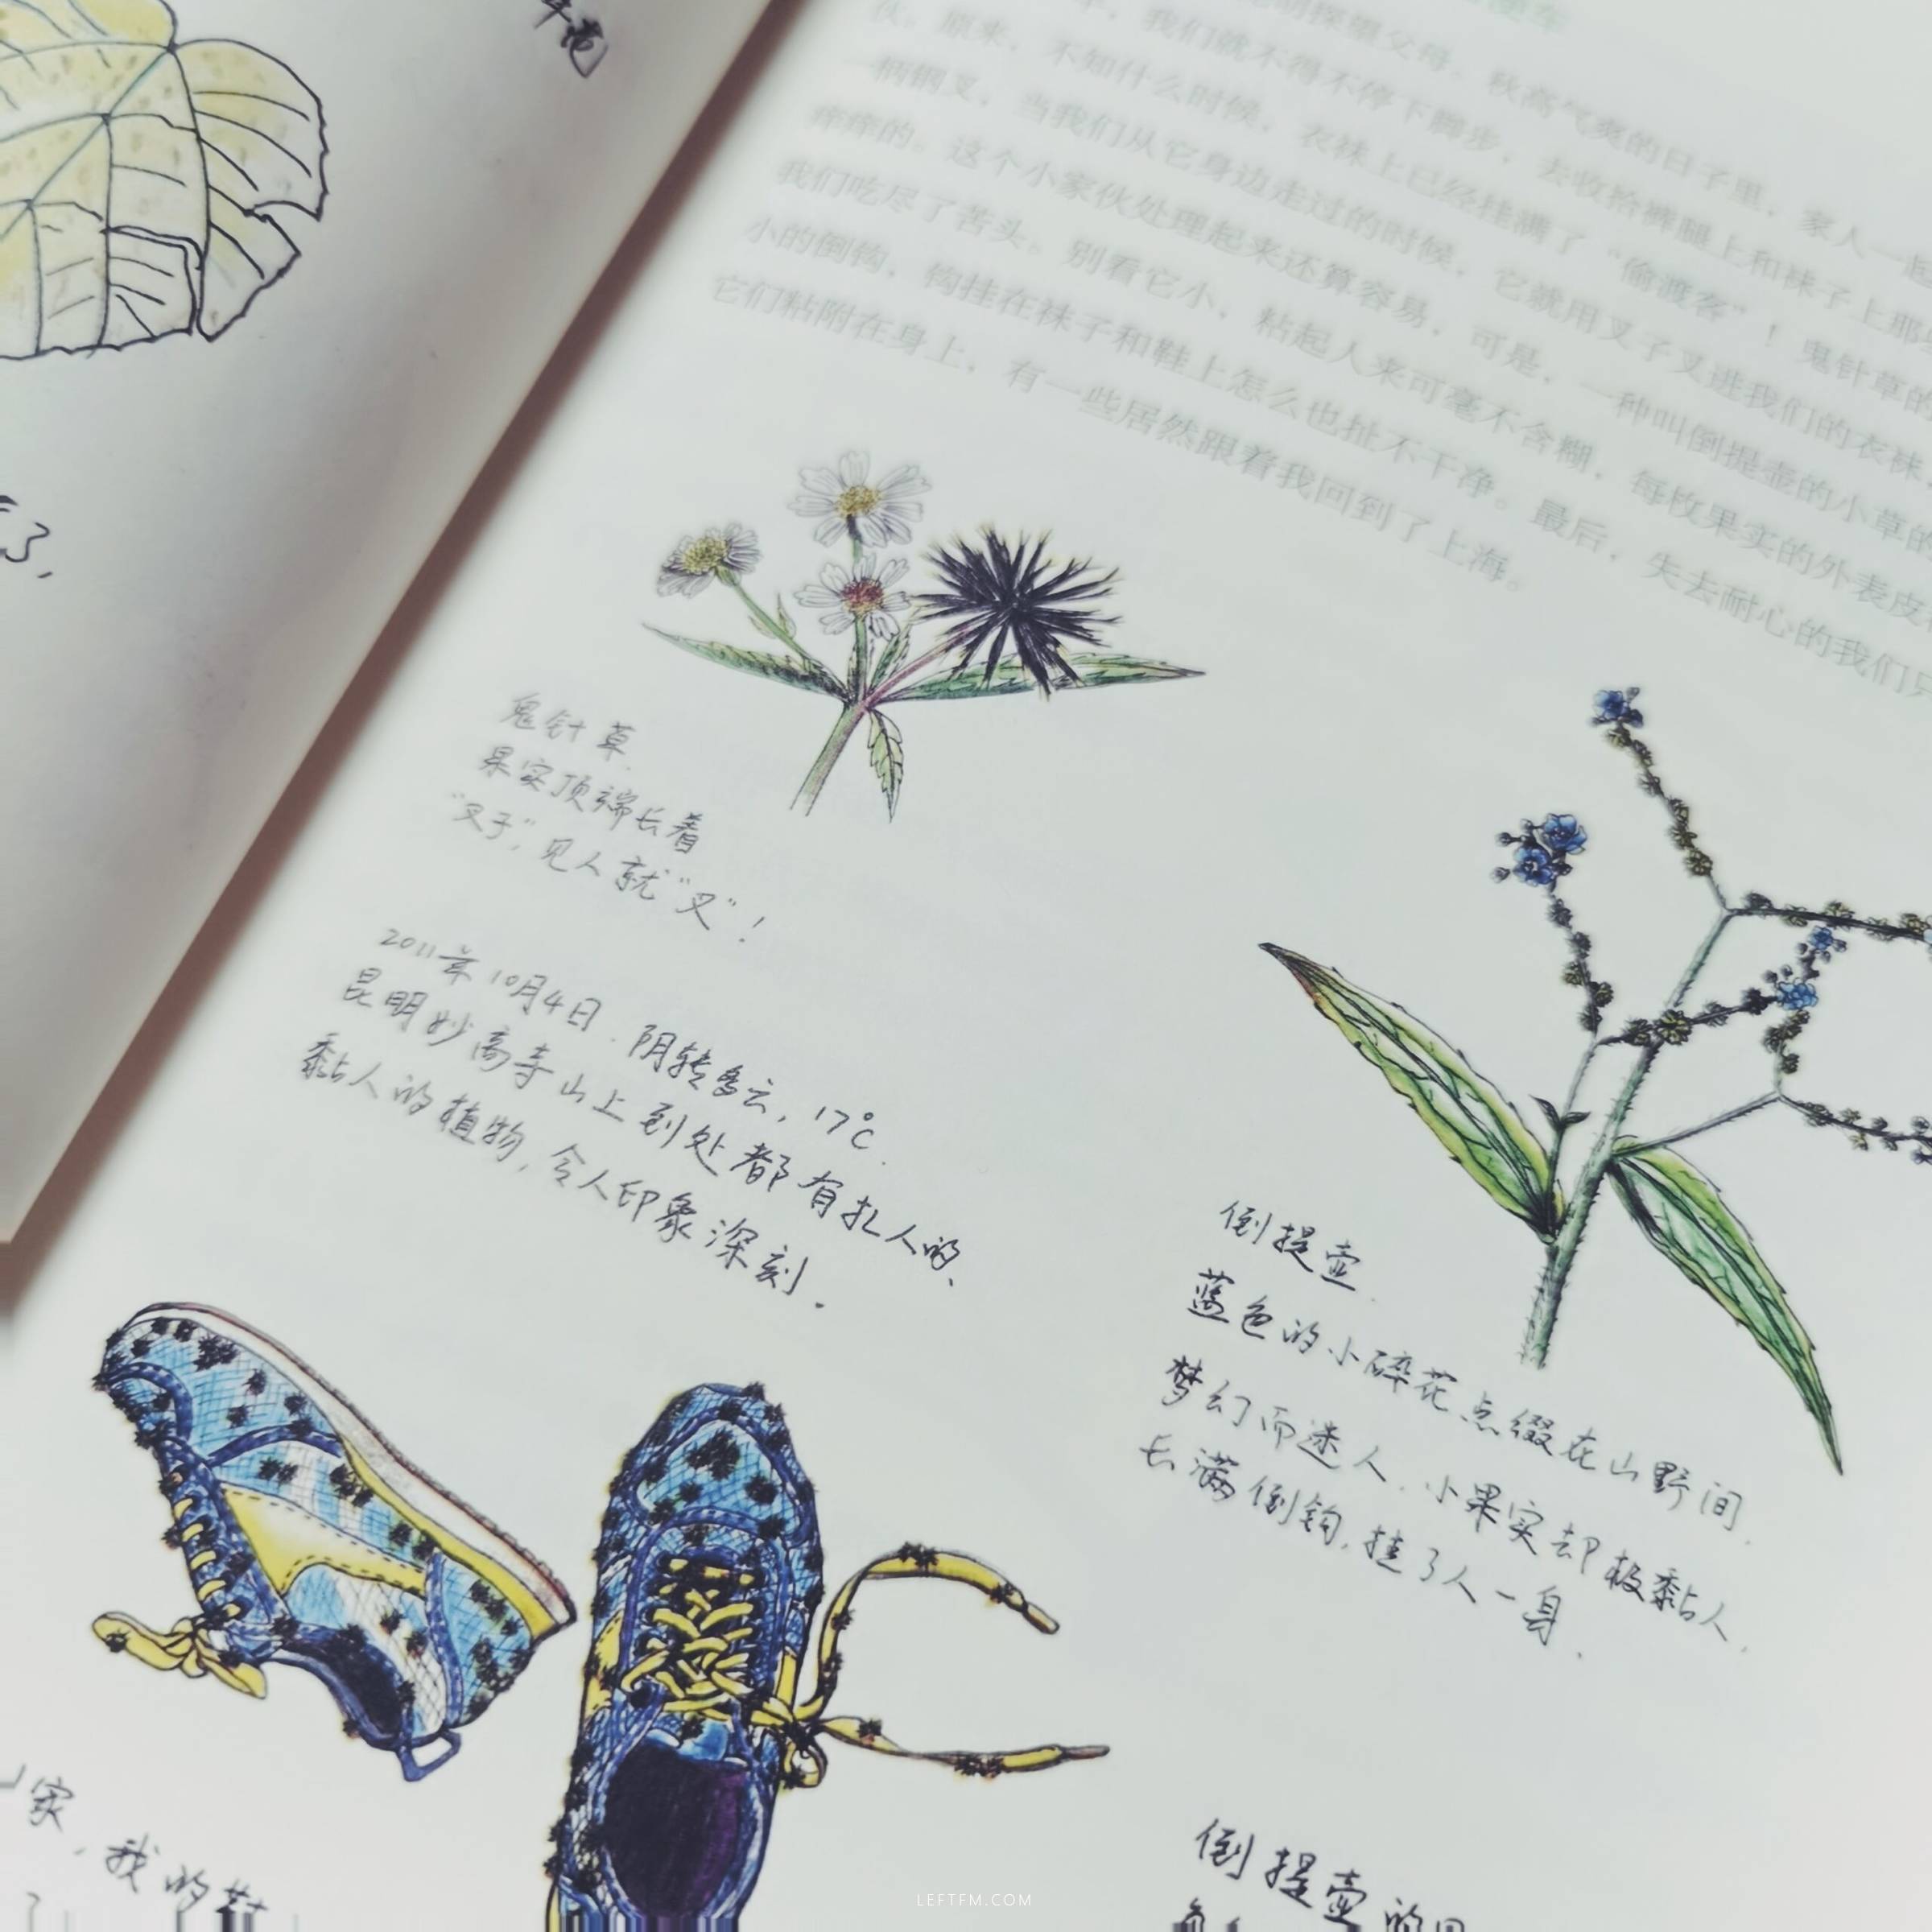 明探望父母。秋高气爽的日子里，家人一起
，我们就不得不停下脚步，去收拾裤腿上和袜子上那些
伙。原来，不知什么时候，衣袜上已经挂满了“偷渡客”！鬼针草的
一柄钢叉，当我们从它身边走过的时候，它就用叉子叉进我们的衣袜，
痒痒的。这个小家伙处理起来还算容易，可是，一种叫倒提壶的小草的
我们吃尽了苦头。别看它小，粘起人来可毫不含糊，每枚果实的外表皮
小的倒钩，钩挂在袜子和鞋上怎么也扯不干净。最后，失去耐心的我们只
它们粘附在身上，有一些居然跟着我回到了上海。
鬼针草
果实顶端长着
“叉子”，见人就“叉”！
2011年10月4日.阴转多云，17℃.
昆明妙高寺山上到处都有扎人的、
黏人的植物，令人印象深刻.
倒提壶.
蓝色的小碎花点缀在山野间.
梦幻而迷人.小果实却极黏人.
长满倒钩,挂了人一身.
家，我的鞋
倒提壶的
LEFTFM.COM